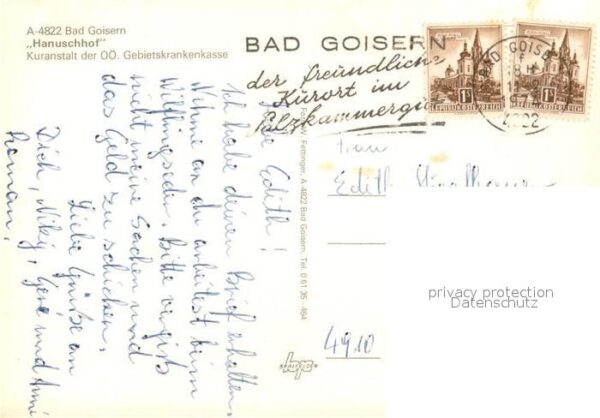 A-4822 Bad Goisern
„Hanuschhof"
Kuranstalt der OÖ. Gebietskrankenkasse
BAD GOISERN
der freundliche
Kurort im
Salzkammergut
BAD GOISERN
4822
REPUBLIK ÖSTERREICH
1S
REPUBLIK ÖSTERREICH
1S
Liebe Edith!
Ich habe deinen Brief erhalten.
Nehme an du arbeitest beim
Bitte vergiß
nicht meine Sachen und
das Geld zu schicken.
Liebe Grüße an
Dich, Niky, Gere und Ami
Roman,
Foto W. Fettinger, A-4822 Bad Goisern, Tel. 0 61 35 - 464
Frau
Edith
4910
privacy protection
Datenschutz